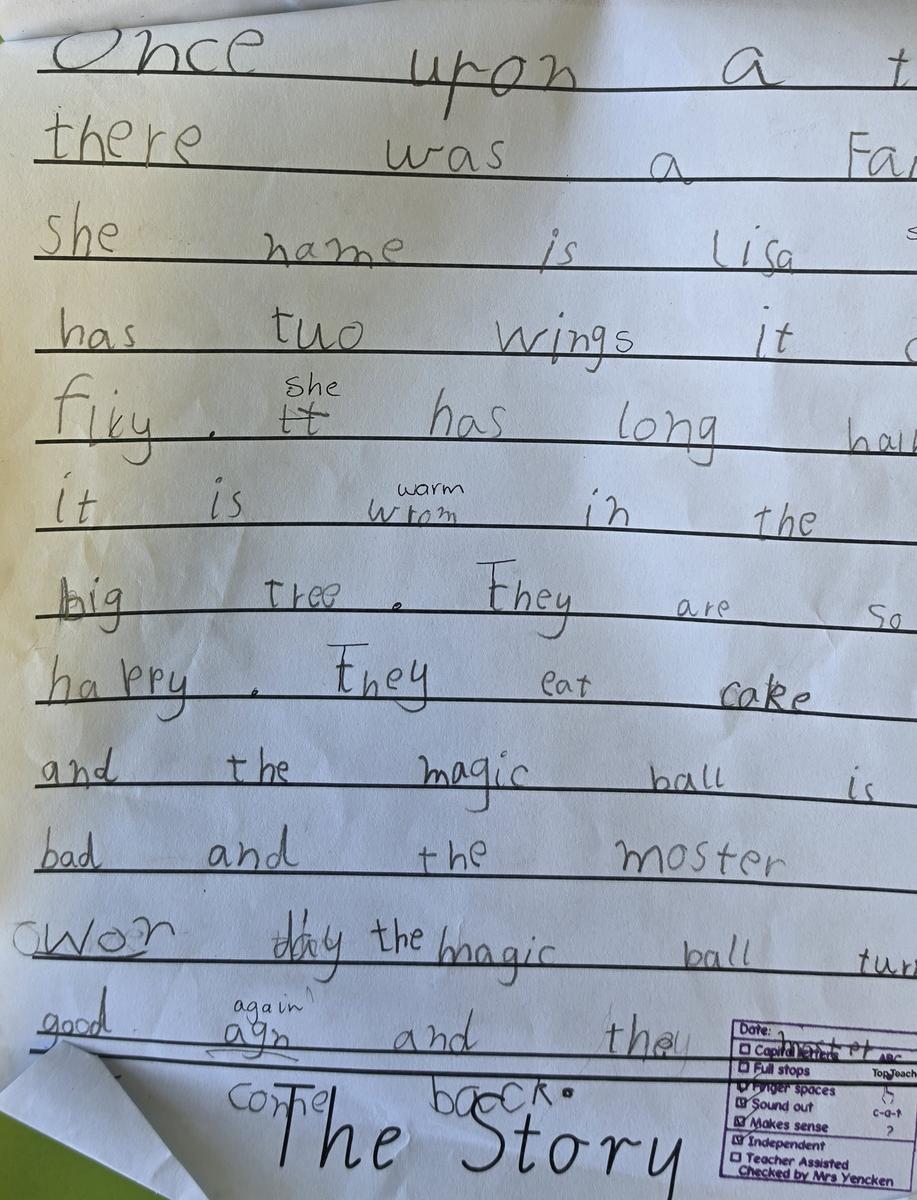 Once upon a t
there was a Fai
she name is lisa s
has tuo wings it c
fliy .
she
it has long hair
warm
it is wrom in the
big tree . They are so
happy . They eat cake
and the magic ball is
bad and the moster
owon day the magic ball tur
again
good agn and they moster
come back.
The Story
Date:
Capital letters ABC
Full stops TopTeach
Finger spaces
Sound out c-a-t
Makes sense ?
Independent
Teacher Assisted
Checked by Mrs Yencken